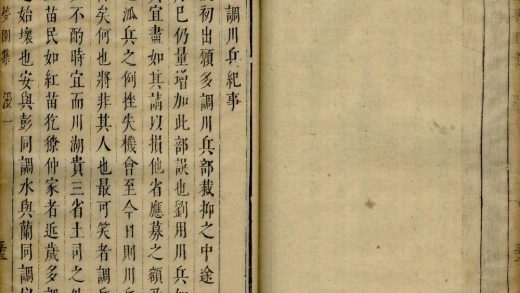 調川兵紀事
初出頗多調川兵部裁抑之中途
巳仍量增加此部誤也劉用川兵
宜盡如其請以損他省應募之額
兵之何挫失機會至今日則川兵
矣何也將非其人也最可笑者調兵
不酌時宜而川湖貴三省土司之外
苗民如紅苗犵獠仲家者近歲多調
始壞也安與彭同調水與蘭同調以
夢園集 漫一